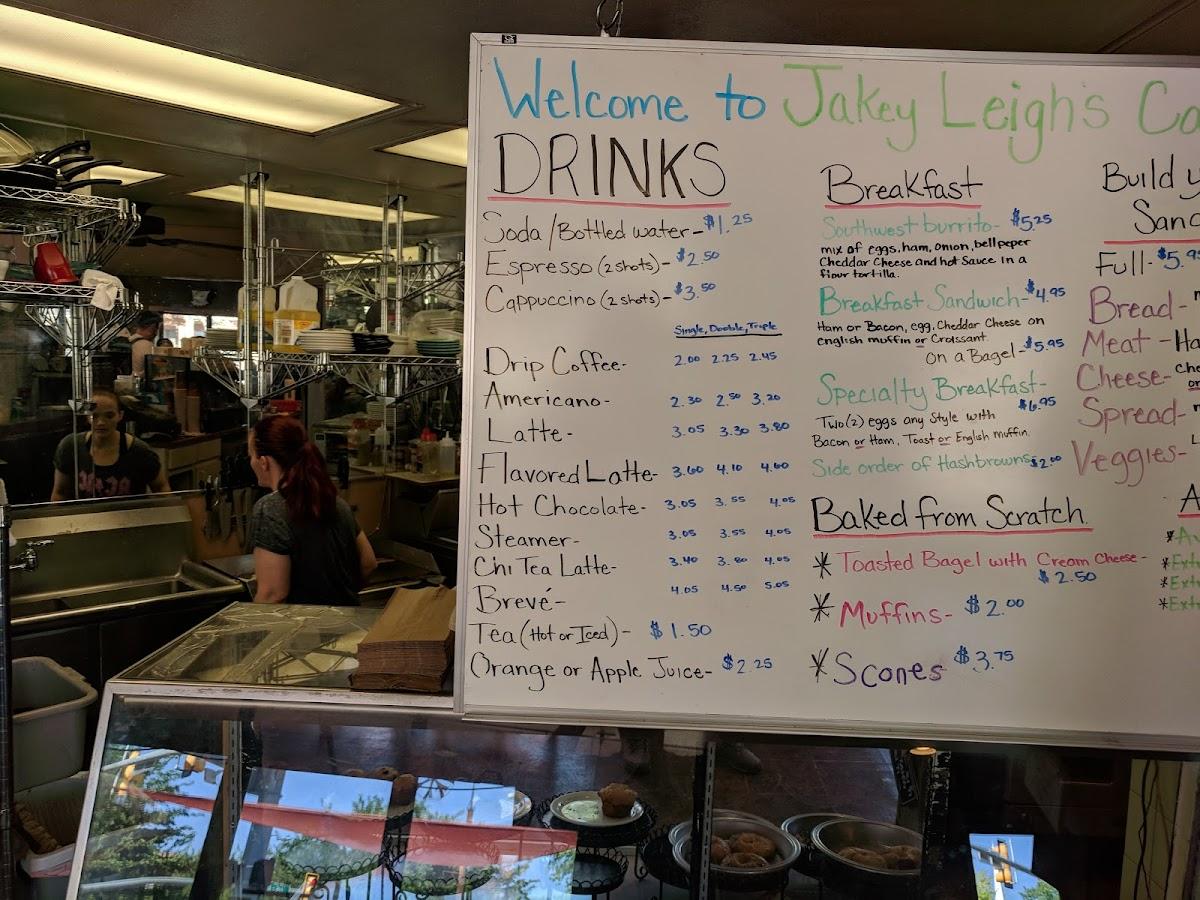 Welcome to Jakey Leigh's Ca
DRINKS
Soda/Bottled water-$1.25
Espresso (2 shots)-$2.50
Cappuccino (2 shots)-$3.50
Single, Double, Triple
Drip Coffee- 2.00 2.25 2.45
Americano- 2.30 2.50 3.20
Latte- 3.05 3.30 3.80
Flavored Latte- 3.60 4.10 4.60
Hot Chocolate- 3.05 3.55 4.05
Steamer- 3.05 3.55 4.05
Chi Tea Latte- 3.40 3.80 4.05
Brevé- 4.05 4.50 5.05
Tea (Hot or Iced)- $1.50
Orange or Apple Juice- $2.25
Breakfast
Southwest burrito- $5.25
mix of eggs, ham, onion, bell peper
Cheddar Cheese and hot Sauce in a
flour tortilla.
Breakfast Sandwich-$4.95
Ham or Bacon, egg, Cheddar Cheese on
english muffin or Croissant
on a Bagel-$5.95
Specialty Breakfast-
$6.95
Two(2) eggs any Style with
Bacon or Ham, Toast or English muffin.
Side order of Hashbrowns $2.00
Baked from Scratch
* Toasted Bagel with Cream Cheese-
$2.50
* Muffins- $2.00
* Scones- $3.75
Build y
Sand
Full-$5.9
Bread-
Meat-Ha
Cheese-Che
or
Spread-
Veggies-
A
*Av
*Extr
*Extr
*Extr